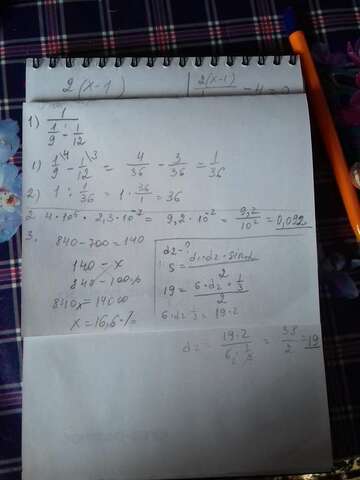 2(x-1)
2(x-1)
1) 1 / (1/9 - 1/12)
1) 1/9 \4 - 1/12 \3 = 4/36 - 3/36 = 1/36
2) 1 : 1/36 = 1 · 36/1 = 36
2. 4·10⁵ · 2,3·10⁻² = 9,2·10⁻² = 9,2/10² = 0,092
3. 840-700=140
140 - x
840 - 100%
840x = 14000
x = 16,6·%=
d2-?
S = d1·d2·sin / 2
19 = 6·d2·1/3 / 2
6·d2 1/3 = 19·2
d2 = 19·2 / 6·1/3 = 38/2 = 19